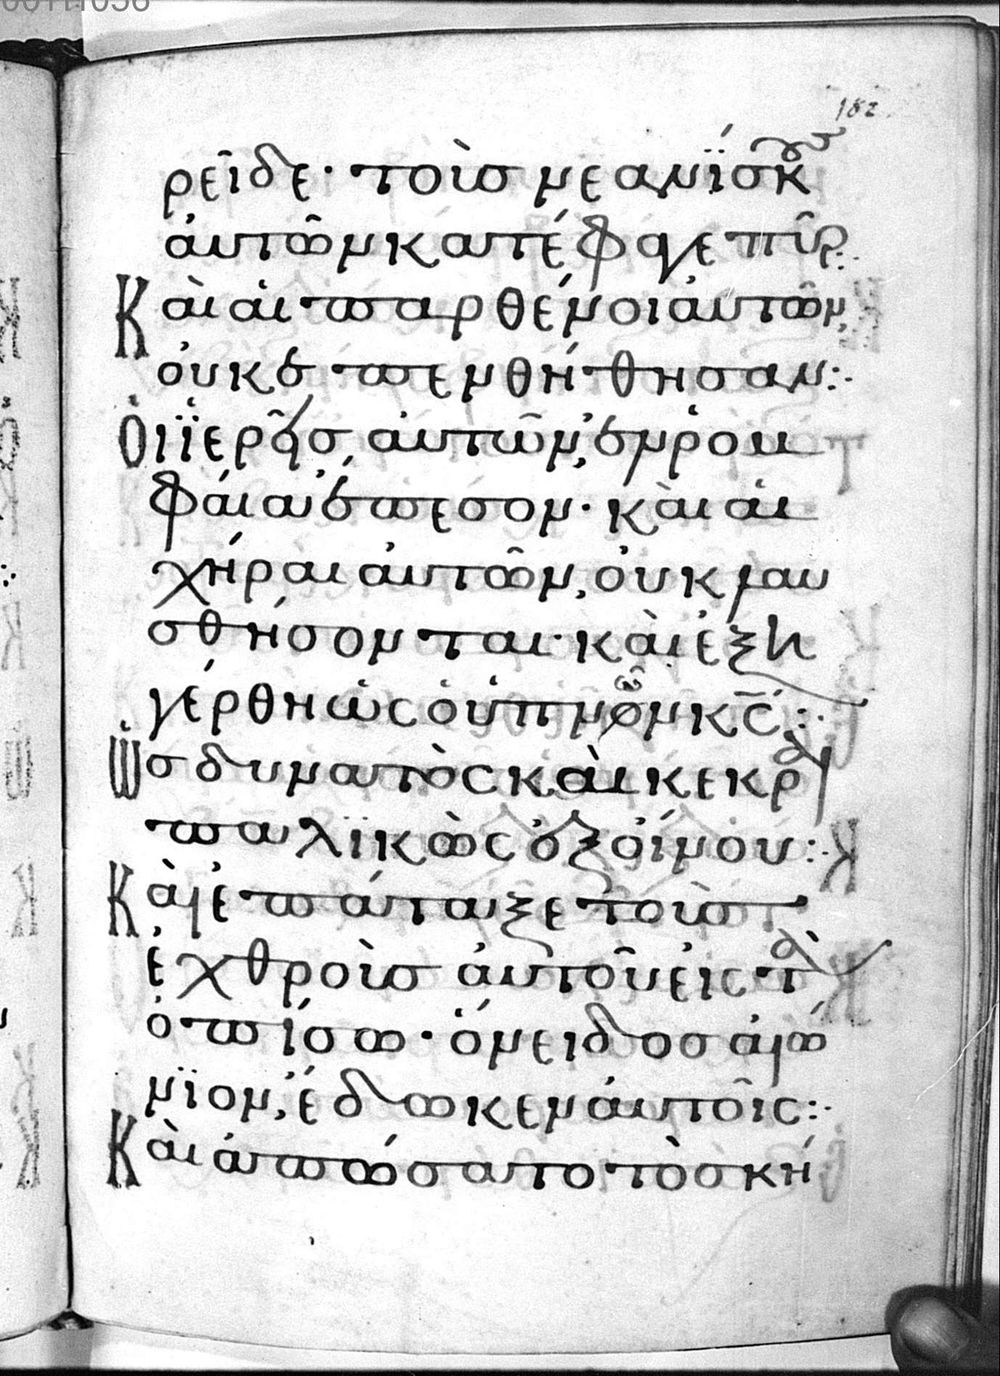 182
ρεῖδε· τοὺσ νεανΐσκους
ἀυτῶν κατέφαγε πῦρ:
Κὰι ἁι παρθένοι ἀυτῶν,
ὀυκ ἐπενθήθησαν:·
Ὁι ϊερεῖσ ἀυτῶν, ἐν ῥομ
φάια ἔπεσον· κὰι ἁι
χῆραι ἀυτῶν, ὀυ κλαυ
σθήσονται· κὰι ἐξη
γέρθη ὡς ὁ ὑπνῶν κς̅:·
Ὡσ δυνατὸς κὰι κεκραι
παλϊκὼς ἐξ οἴνου:·
Κὰι ἐπάταξε τοὺσ
ἐχθροὺσ ἀυτοῦ εἰς τὰ
ὀπίσω· ὄνειδοσ ἀιώ
νϊον, ἔδωκεν ἀυτοῖς:·
Κὰι ἀπώσατο τὸ σκή